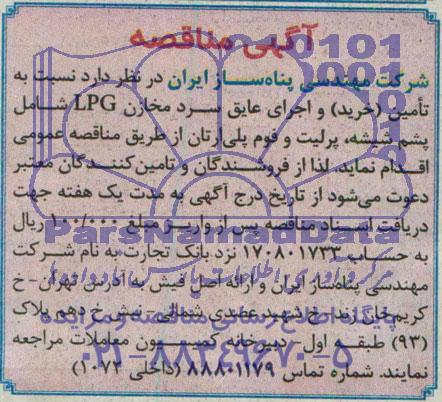 آگهی مناقصه
شرکت مهندسی پناه‌ساز ایران در نظر دارد نسبت به
تأمین (خرید) و اجرای عایق سرد مخازن LPG شامل
پشم شیشه، پرلیت و فوم پلی‌ارتان از طریق مناقصه عمومی
اقدام نماید، لذا از فروشندگان و تامین‌کنندگان معتبر
دعوت می‌شود از تاریخ درج آگهی به مدت یک هفته جهت
دریافت اسناد مناقصه پس از واریز مبلغ ۱۰۰/۰۰۰ ریال
به حساب ۱۷۰۸۰۱۷۳۳ نزد بانک تجارت به نام شرکت
مهندسی پناه‌ساز ایران و ارائه اصل فیش به آدرس تهران-خ
کریم‌خان زند-خ شهید عضدی شمالی-نبش خ دهم پلاک
(۹۳) طبقه اول-دبیرخانه کمیسیون معاملات مراجعه
نمایند. شماره تماس ۸۸۸۰۱۱۷۹ (داخلی ۱۰۷۳)
ParsNamadData
پایگاه اطلاع رسانی مناقصه و مزایده
۰۲۱-۸۸۳۴۹۶۷۰-۵